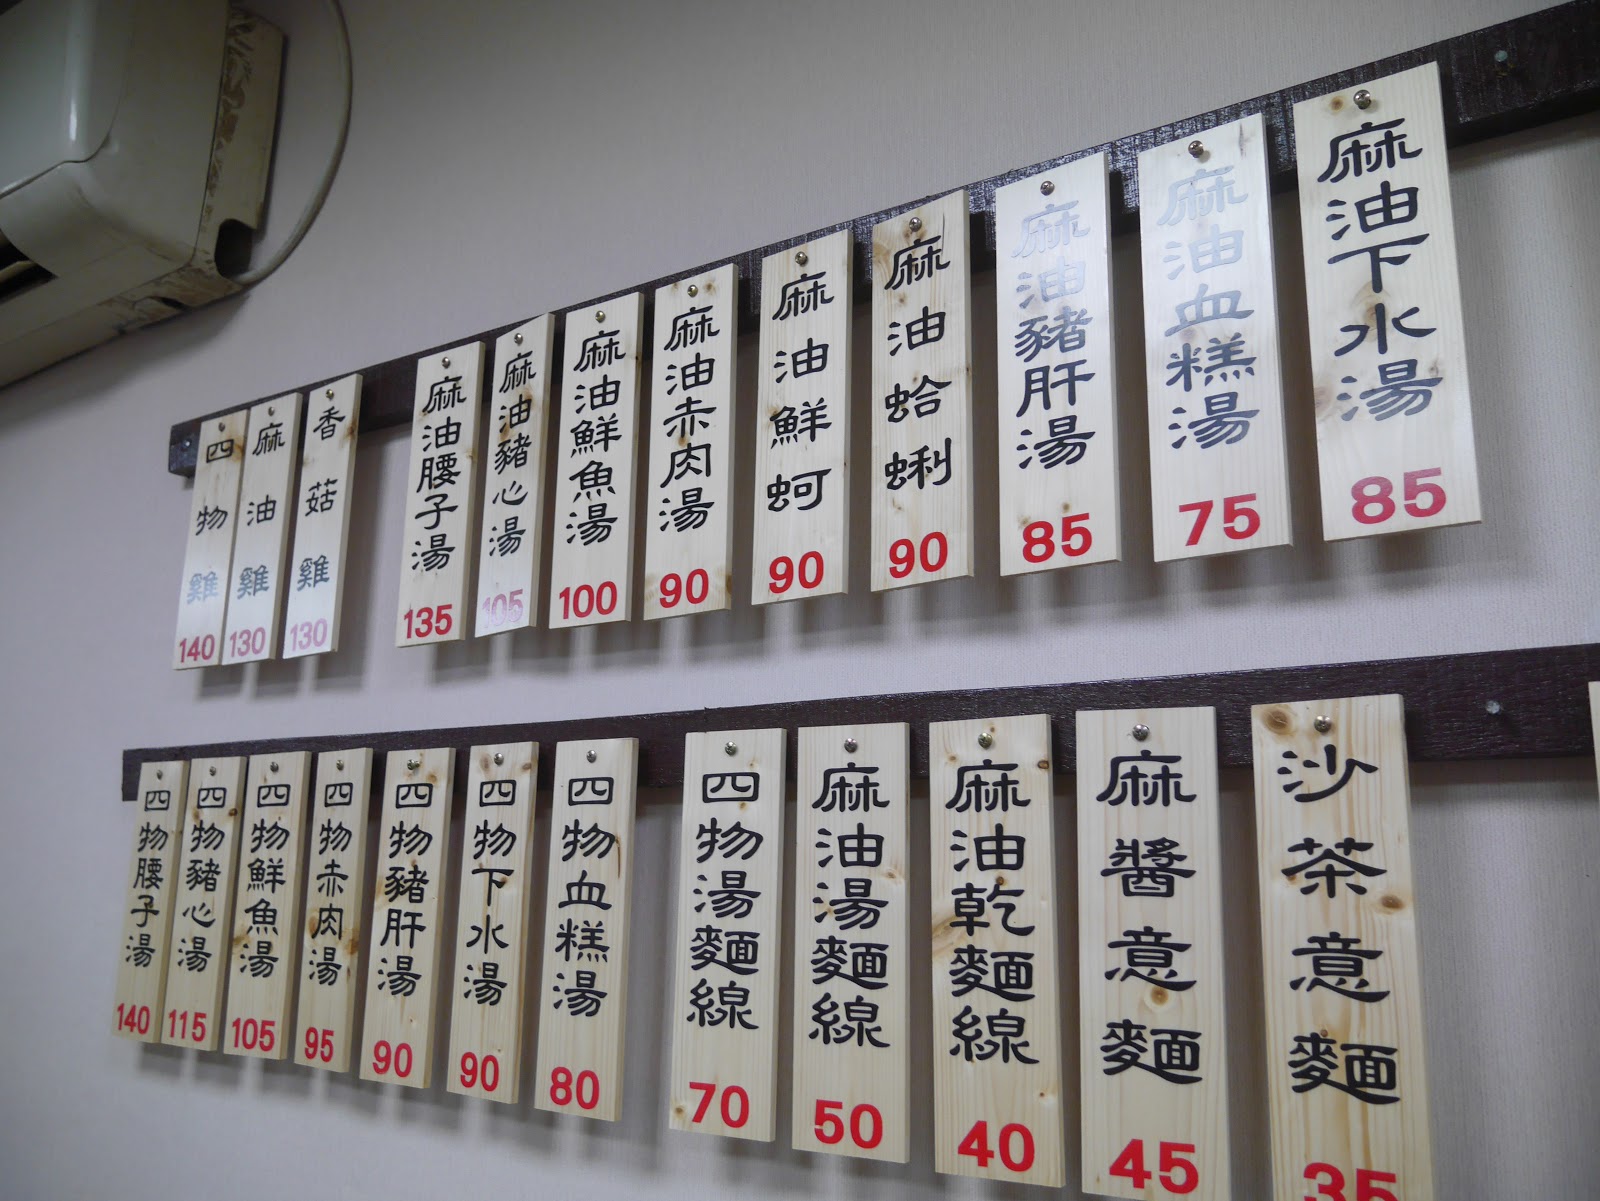 四物雞
140
麻油雞
130
香菇雞
130
麻油腰子湯
135
麻油豬心湯
105
麻油鮮魚湯
100
麻油赤肉湯
90
麻油鮮蚵
90
麻油蛤蜊
90
麻油豬肝湯
85
麻油血糕湯
75
麻油下水湯
85
四物腰子湯
140
四物豬心湯
115
四物鮮魚湯
105
四物赤肉湯
95
四物豬肝湯
90
四物下水湯
90
四物血糕湯
80
四物湯麵線
70
麻油湯麵線
50
麻油乾麵線
40
麻醬意麵
45
沙茶意麵
35